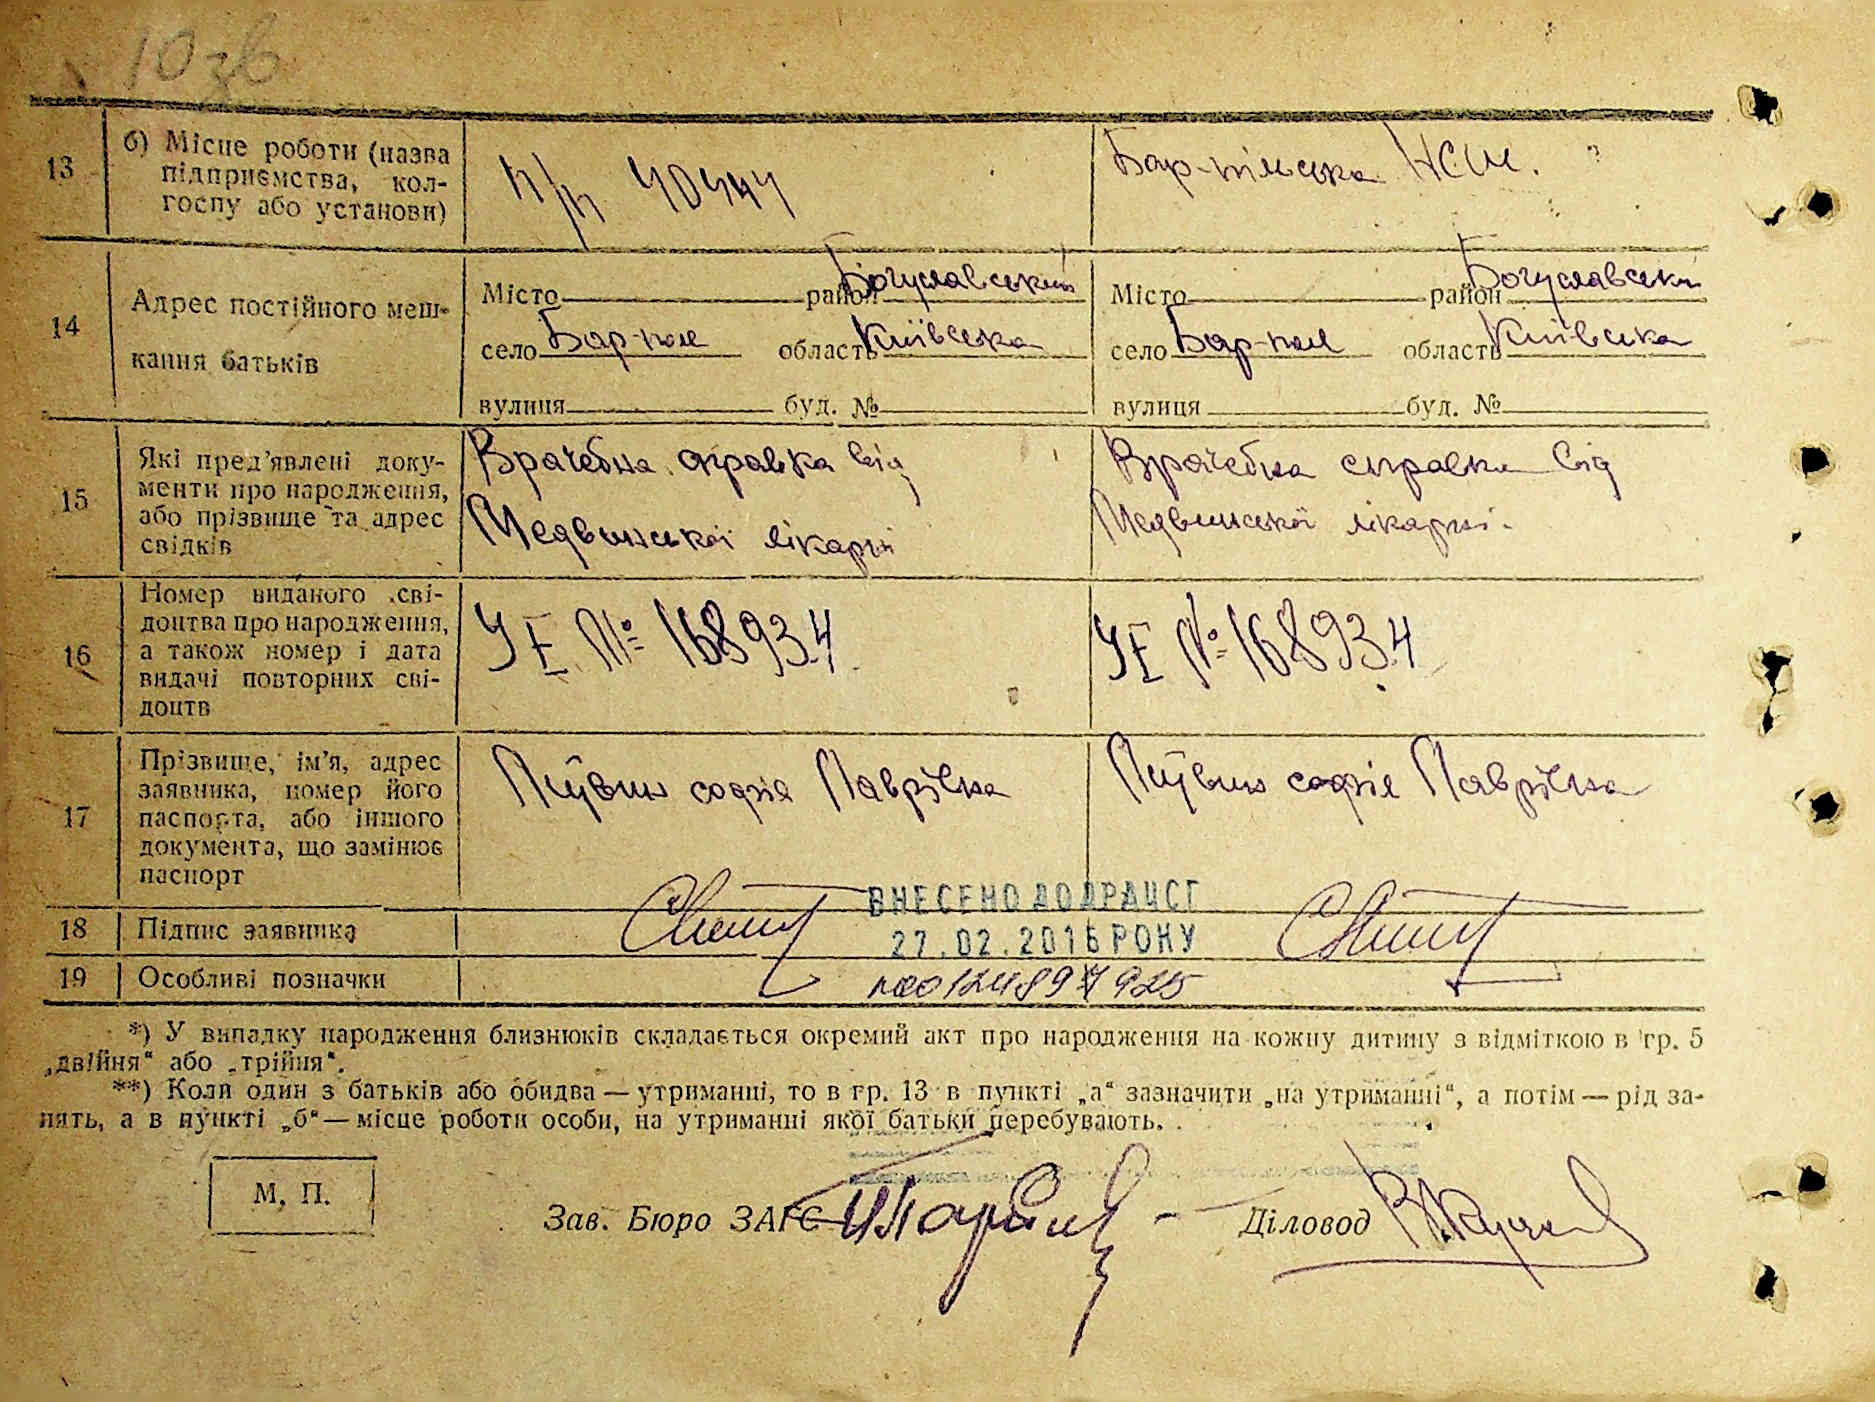 10 зв
13
б) Місце роботи (назва
підприємства, кол-
госпу або установи)
п/п 40444
Бар-пільська НСШ.
14
Адрес постійного меш-
кання батьків
Місто район Богуславський
село Бар-поле область Київська
вулиця буд. №
Місто район Богуславськи
село Бар-поле область Київська
вулиця буд. №
15
Які пред'явлені доку-
менти про народження,
або прізвище та адрес
свідків
Врачебна справка від
Медвинської лікарні
Врачебна справка від
Медвинської лікарні.
16
Номер виданого сві-
доцтва про народження,
а також номер і дата
видачі повторних сві-
доцтв
УЕ № 168934
УЕ № 168934
17
Прізвище, ім'я, адрес
заявника, номер його
паспорта, або іншого
документа, що замінює
паспорт
софія Лаврівна
софія Лаврівна
18
Підпис заявника
ВНЕСЕНО ДО ДРАЦСГ
27.02.2016 РОКУ
19
Особливі позначки
*) У випадку народження близнюків складається окремий акт про народження на кожну дитину з відміткою в гр. 5
„двійня“ або „трійня“.
**) Коли один з батьків або обидва — утриманні, то в гр. 13 в пункті „а“ зазначити „на утриманні“, а потім — рід за-
нять, а в пункті „б“ — місце роботи особи, на утриманні якої батьки перебувають.
М. П.
Зав. Бюро ЗАГС
Діловод